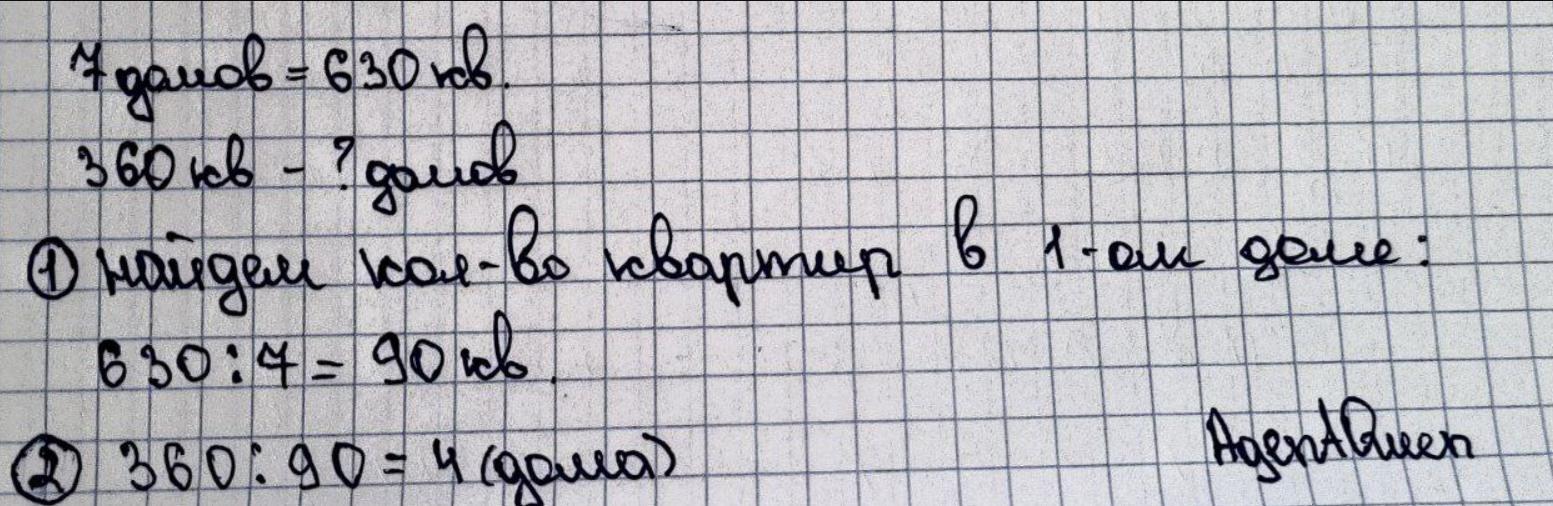 7 домов = 630 кв.
360 кв - ? домов
① найдем кол-во квартир в 1-ом доме:
630 : 7 = 90 кв.
② 360 : 90 = 4 (дома)
AgentQueen